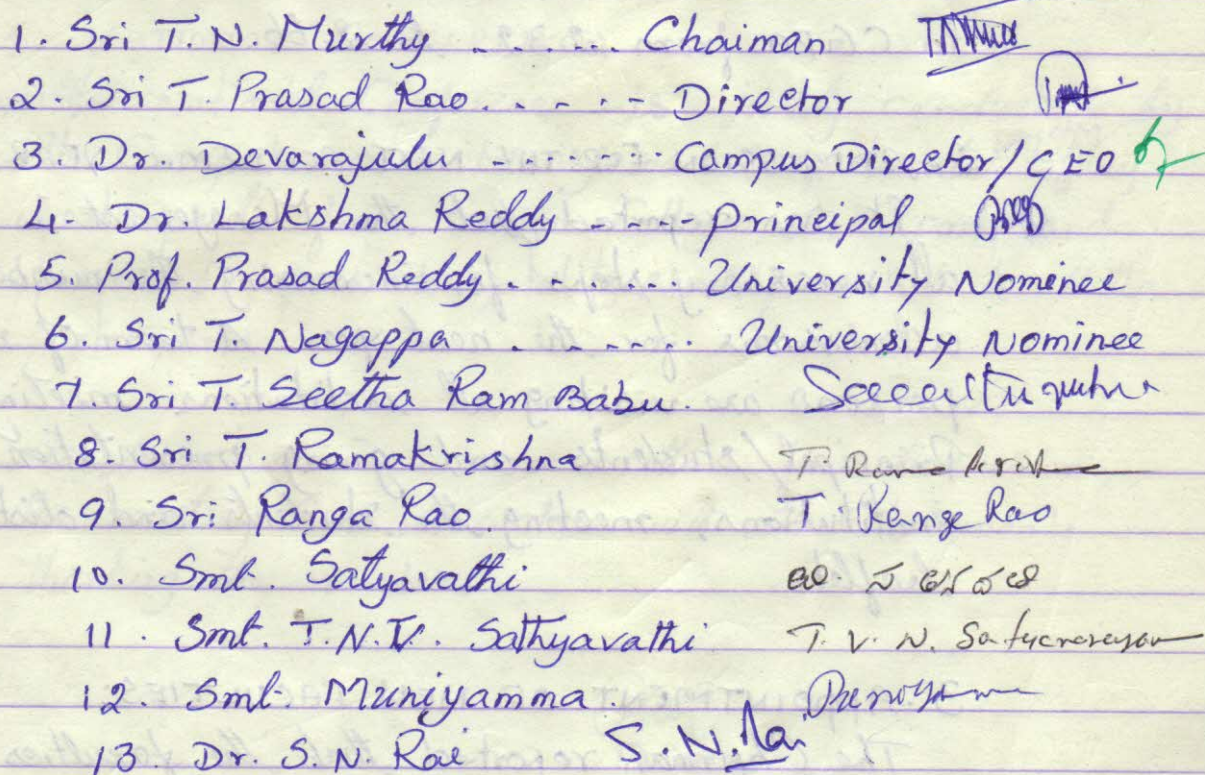 1. Sri T.N. Murthy ....... Chaiman
2. Sri T. Prasad Rao. . - . . - Director
3. Dr. Devarajulu - . . - . . . Campus Director/CEO
4. Dr. Lakshma Reddy - . - - principal
5. Prof. Prasad Reddy . - . . . . University Nominee
6. Sri T. Nagappa . - . - . . . University Nominee
7. Sri T. Seetha Ram Babu.
8. Sri T. Ramakrishna T. Rama
9. Sri Ranga Rao. T. Range Rao
10. Smt. Satyavathi
11. Smt. T.N.V. Sathyavathi T. V. N. Satyanarayan
12. Smt. Muniyamma.
13. Dr. S.N. Rai S.N. Rai